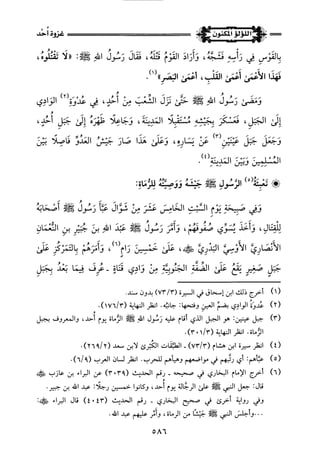 اللؤلؤ المكنون
غزوة أحد
بِالْقَوْسِ فِي رَأْسِهِ فَشَجَّهُ، وَأَرَادَ القَوْمُ قَتْلَهُ، فَقَالَ رَسُولُ اللهِ ﷺ: «لَا تَقْتُلُوهُ،
فَهَذَا الأَعْمَىٰ أَعْمَى القَلْبِ، أَعْمَى البَصَرِ»(١).
وَمَضَىٰ رَسُولُ اللهِ ﷺ حَتَّىٰ نَزَلَ الشِّعْبَ مِنْ أُحُدٍ، فِي عُدْوَةِ(٢) الوَادِي
إِلَى الجَبَلِ، فَعَسْكَرَ بِجَيْشِهِ مُسْتَقْبِلًا المَدِينَةَ، وَجَاعِلًا ظَهْرَهُ إِلَىٰ جَبَلِ أُحُدٍ،
وَجَعَلَ جَبَلَ عَيْنَيْنِ(٣) عَنْ يَسَارِهِ، وَعَلَىٰ هَذَا صَارَ جَيْشُ العَدُوِّ فَاصِلًا بَيْنَ
المُسْلِمِينَ وَبَيْنَ المَدِينَةِ(٤).
تَعْبِئَةُ(٥) الرَّسُولِ ﷺ جَيْشَهُ وَوَصِيَّتُهُ لِلرُّمَاةِ:
وَفِي صَبِيحَةِ يَوْمِ السَّبْتِ الخَامِسَ عَشَرَ مِنْ شَوَّالَ عَبَّأَ رَسُولُ اللهِ ﷺ أَصْحَابَهُ
لِلْقِتَالِ، وَأَخَذَ يُسَوِّي صُفُوفَهُمْ، وَأَمَّرَ رَسُولُ اللهِ ﷺ عَبْدَ اللهِ بنَ جُبَيْرِ بنِ النُّعْمَانِ
الأَنْصَارِيَّ الأَوْسِيَّ البَدْرِيَّ ﷺ، عَلَىٰ خَمْسِينَ رَامٍ(٦)، وَأَمَرَهُمْ بِالتَّمَرْكُزِ عَلَىٰ
جَبَلٍ صَغِيرٍ يَقَعُ عَلَىٰ الضِّفَّةِ الجَنُوبِيَّةِ مِنْ وَادِي قَنَاةَ - عُرِفَ فِيمَا بَعْدُ بِجَبَلِ
(١) أخرج ذلك ابن إسحاق في السيرة (٧٣/٣) بدون سند.
(٢) عُدوَةُ الوادي بضمِّ العين وفتحها: جانبُه. انظر النهاية (١٧٦/٣).
(٣) جبل عينين: هو الجبل الذي أقام عليه رَسُول الله ﷺ الرُّماة يوم أحد، والمعروف بجبل
الرُّماة. انظر النهاية (٣٠١/٣).
(٤) انظر سيرة ابن هشام (٧٣/٣) - الطَّبَقَات الكُبْرَىٰ لابن سعد (٢٦٩/٢).
(٥) عبَّأهم: أي رتَّبهم في مواضعهم وهيأهم للحرب. انظر لسان العرب (٦/٩).
(٦) أخرج الإمام البخاري في صحيحه - رقم الحديث (٣٠٣٩) عن البراء بن عازب ﷺ
قال: جعل النبي ﷺ على الرجالة يوم أحد، وكانوا خمسين رجلًا: عبد الله بن جبير.
وفي رواية أخرى في صحيح البخاري - رقم الحديث (٤٠٤٣) قال البراء ﷺ:
...وأجلس النبي ﷺ جَيْشًا من الرماة، وأمَّر عليهم عبد الله.
٥٨٦